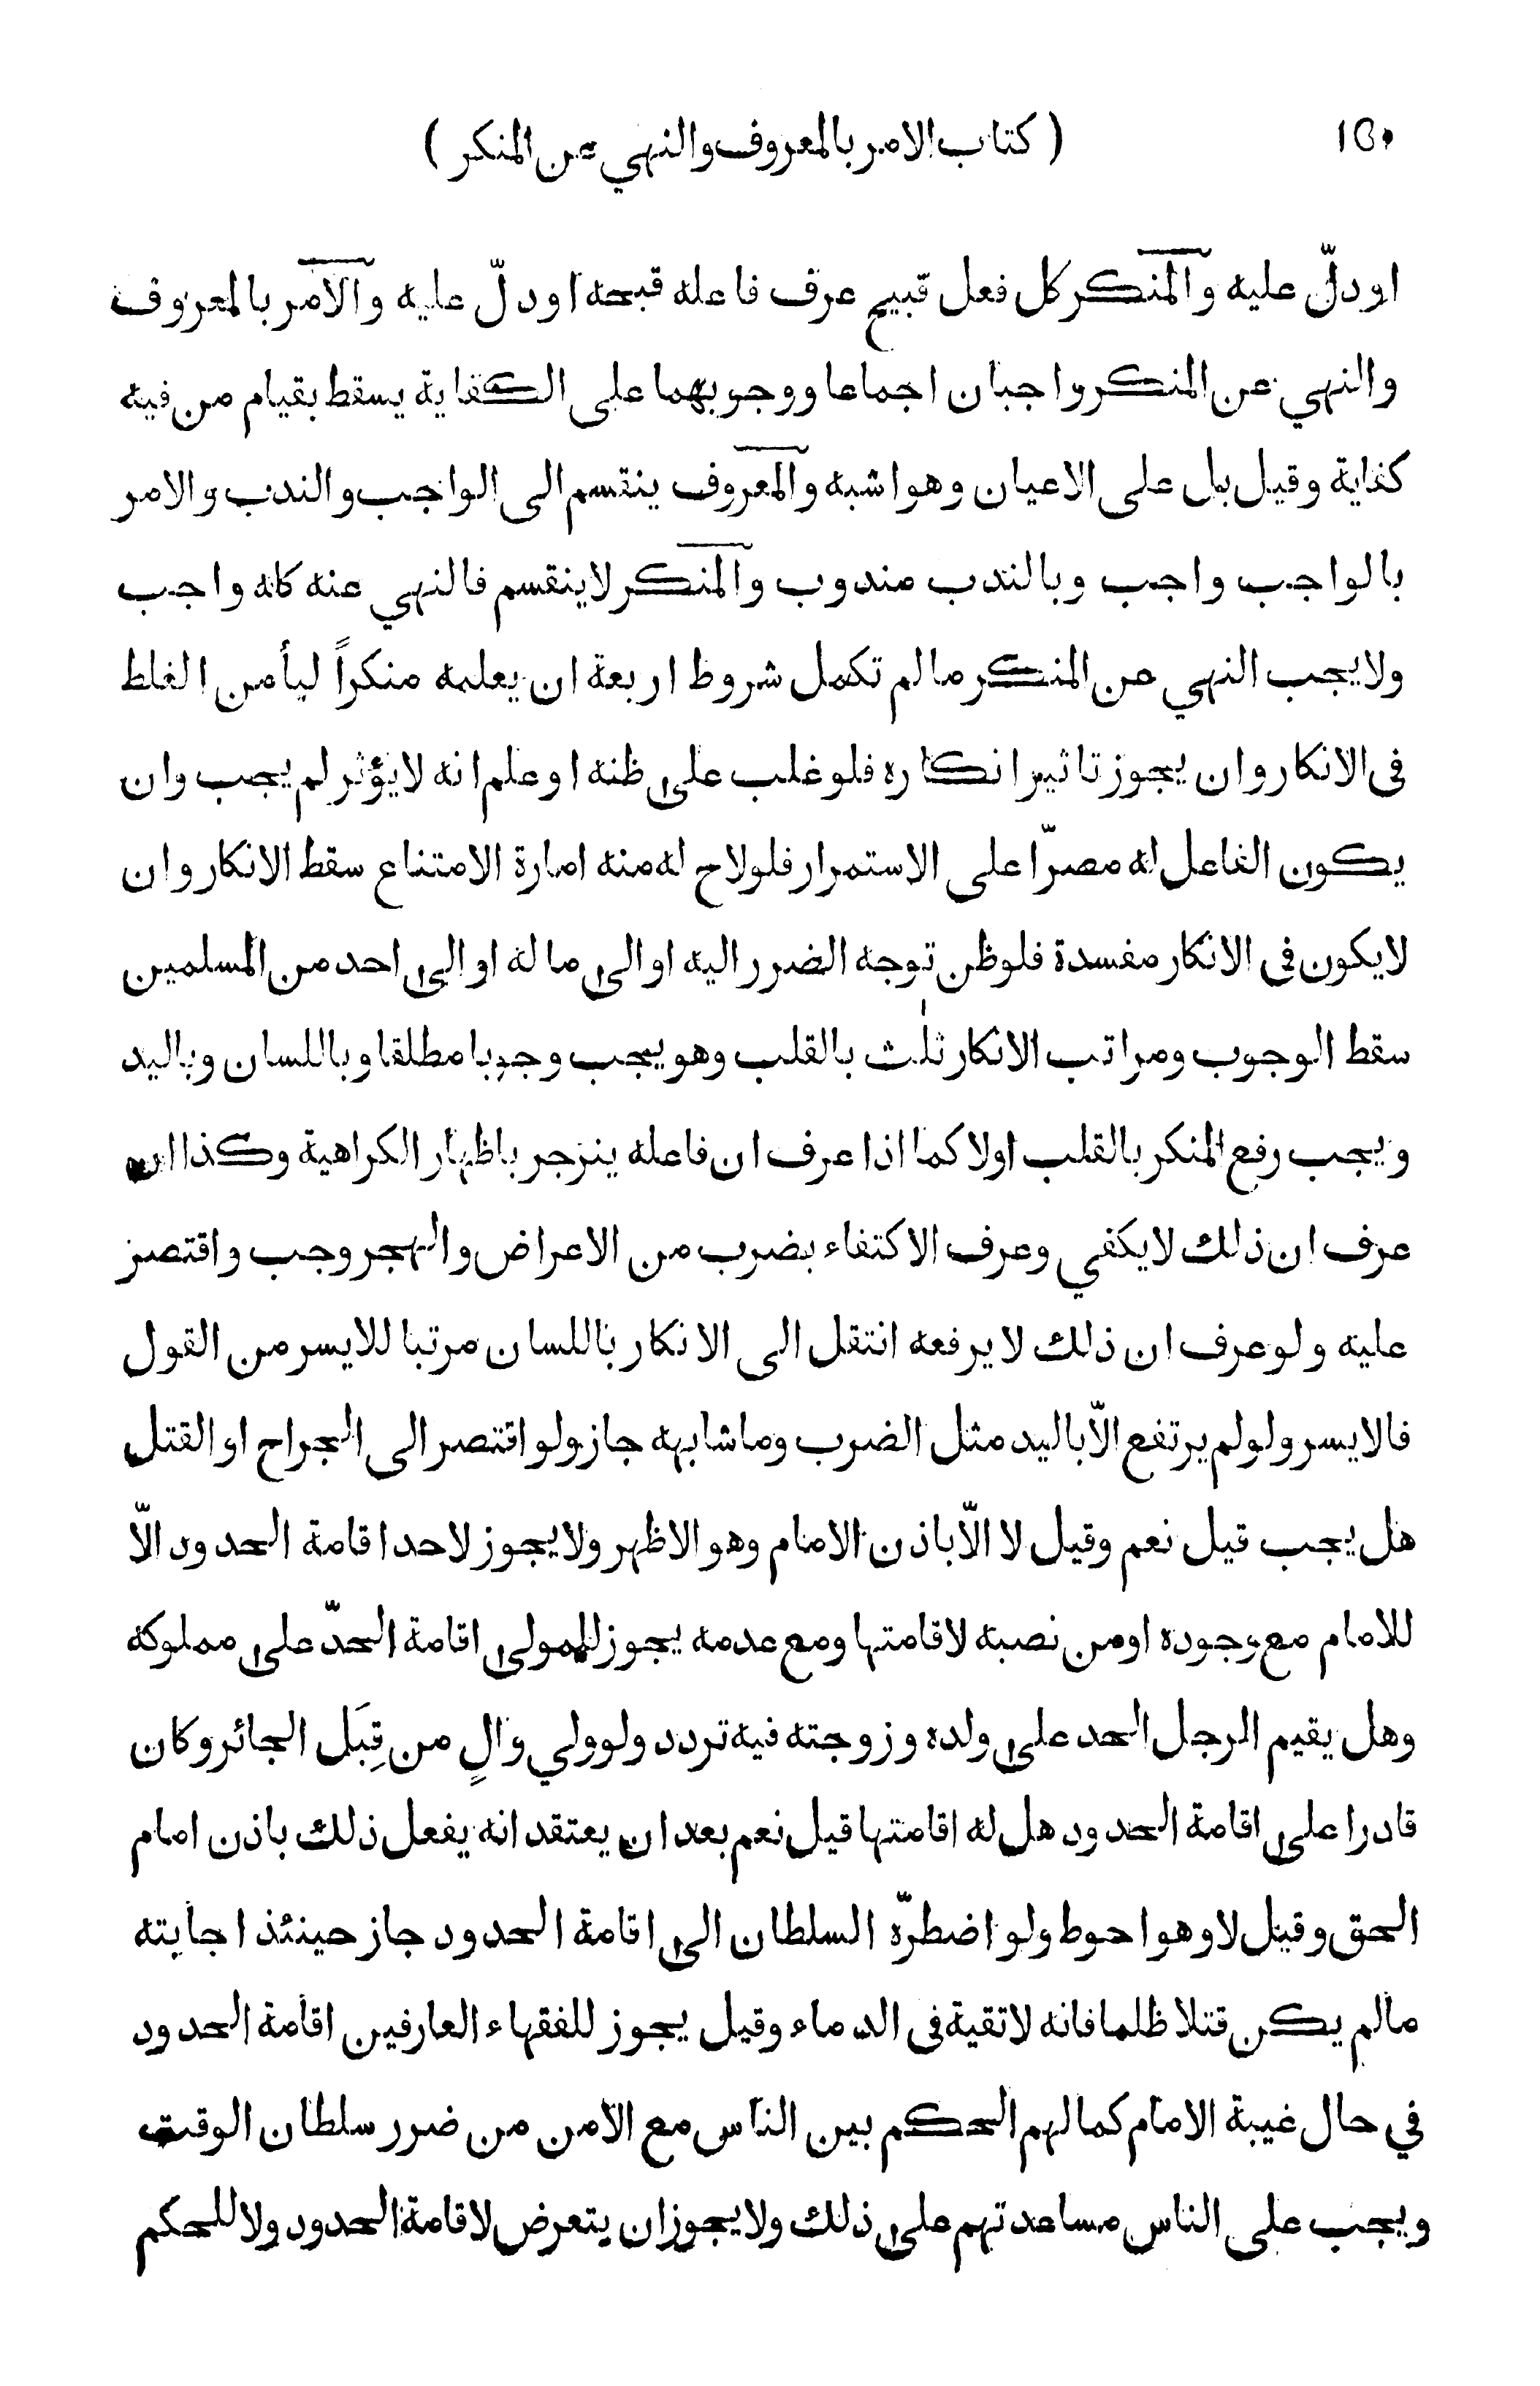 ١٥٠ ( كتاب الامر بالمعروف والنهي عن المنكر )
او دلّ عليه والمنكر كل فعل قبيح عرف فاعله قبحه او دلّ عليه والامر بالمعروف
والنهي عن المنكر واجبان اجماعا ووجوبهما على الكفاية يسقط بقيام من فيه
كفاية وقيل بل على الاعيان وهو اشبه والمعروف ينقسم الى الواجب والندب والامر
بالواجب واجب وبالندب مندوب والمنكر لا ينقسم فالنهي عنه كله واجب
ولا يجب النهي عن المنكر ما لم تكمل شروط اربعة ان يعلمه منكراً ليأمن الغلط
فى الانكار وان يجوز تاثير انكاره فلو غلب على ظنه او علم انه لا يؤثر لم يجب وان
يكون الفاعل له مصرّا على الاستمرار فلو لاح له منه امارة الامتناع سقط الانكار وان
لا يكون فى الانكار مفسدة فلو ظن توجه الضرر اليه او الى ماله او الى احد من المسلمين
سقط الوجوب ومراتب الانكار ثلٰث بالقلب وهو يجب وجوبا مطلقا وباللسان وباليد
ويجب رفع المنكر بالقلب اولا كما اذا عرف ان فاعله ينزجر باظهار الكراهية وكذا ان
عرف ان ذلك لا يكفي وعرف الاكتفاء بضرب من الاعراض والهجر وجب واقتصر
عليه ولو عرف ان ذلك لا يرفعه انتقل الى الانكار باللسان مرتبا للايسر من القول
فالايسر ولو لم يرتفع الّا باليد مثل الضرب وما شابهه جاز ولو اقتصر الى الجراح او القتل
هل يجب قيل نعم وقيل لا الّا باذن الامام وهو الاظهر ولا يجوز لاحد اقامة الحدود الّا
للامام مع وجوده او من نصبه لاقامتها ومع عدمه يجوز للمولى اقامة الحدّ على مملوكه
وهل يقيم الرجل الحد على ولده وزوجته فيه تردد ولو ولي والٍ من قِبَل الجائر وكان
قادرا على اقامة الحدود هل له اقامتها قيل نعم بعد ان يعتقد انه يفعل ذلك باذن امام
الحق وقيل لا وهو احوط ولو اضطرّه السلطان الى اقامة الحدود جاز حينئذ اجابته
ما لم يكن قتلا ظلما فانه لا تقية فى الدماء وقيل يجوز للفقهاء العارفين اقامة الحدود
في حال غيبة الامام كما لهم الحكم بين الناس مع الامن من ضرر سلطان الوقت
ويجب على الناس مساعدتهم على ذلك ولا يجوز ان يتعرض لاقامة الحدود ولا للحكم